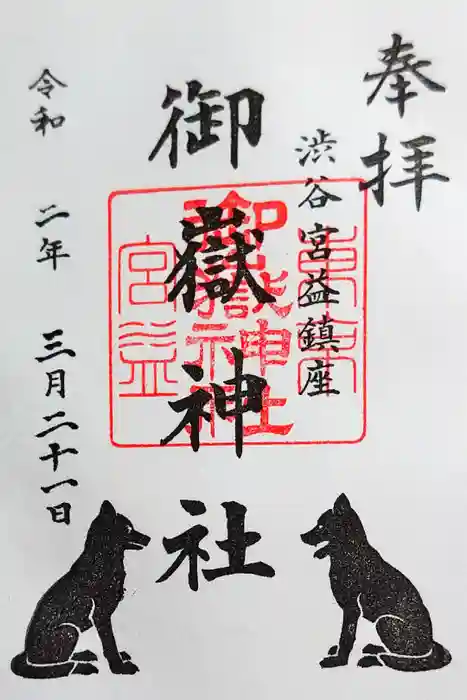 奉拝
渋谷宮益鎮座
御嶽神社
令和 二年 三月二十一日
東京
御嶽神社
宮益